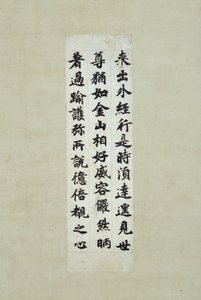 来出外經行是時湏達遥見世
尊猶如金山相好威容儼然昞
著過踰護弥所説億倍覩之心